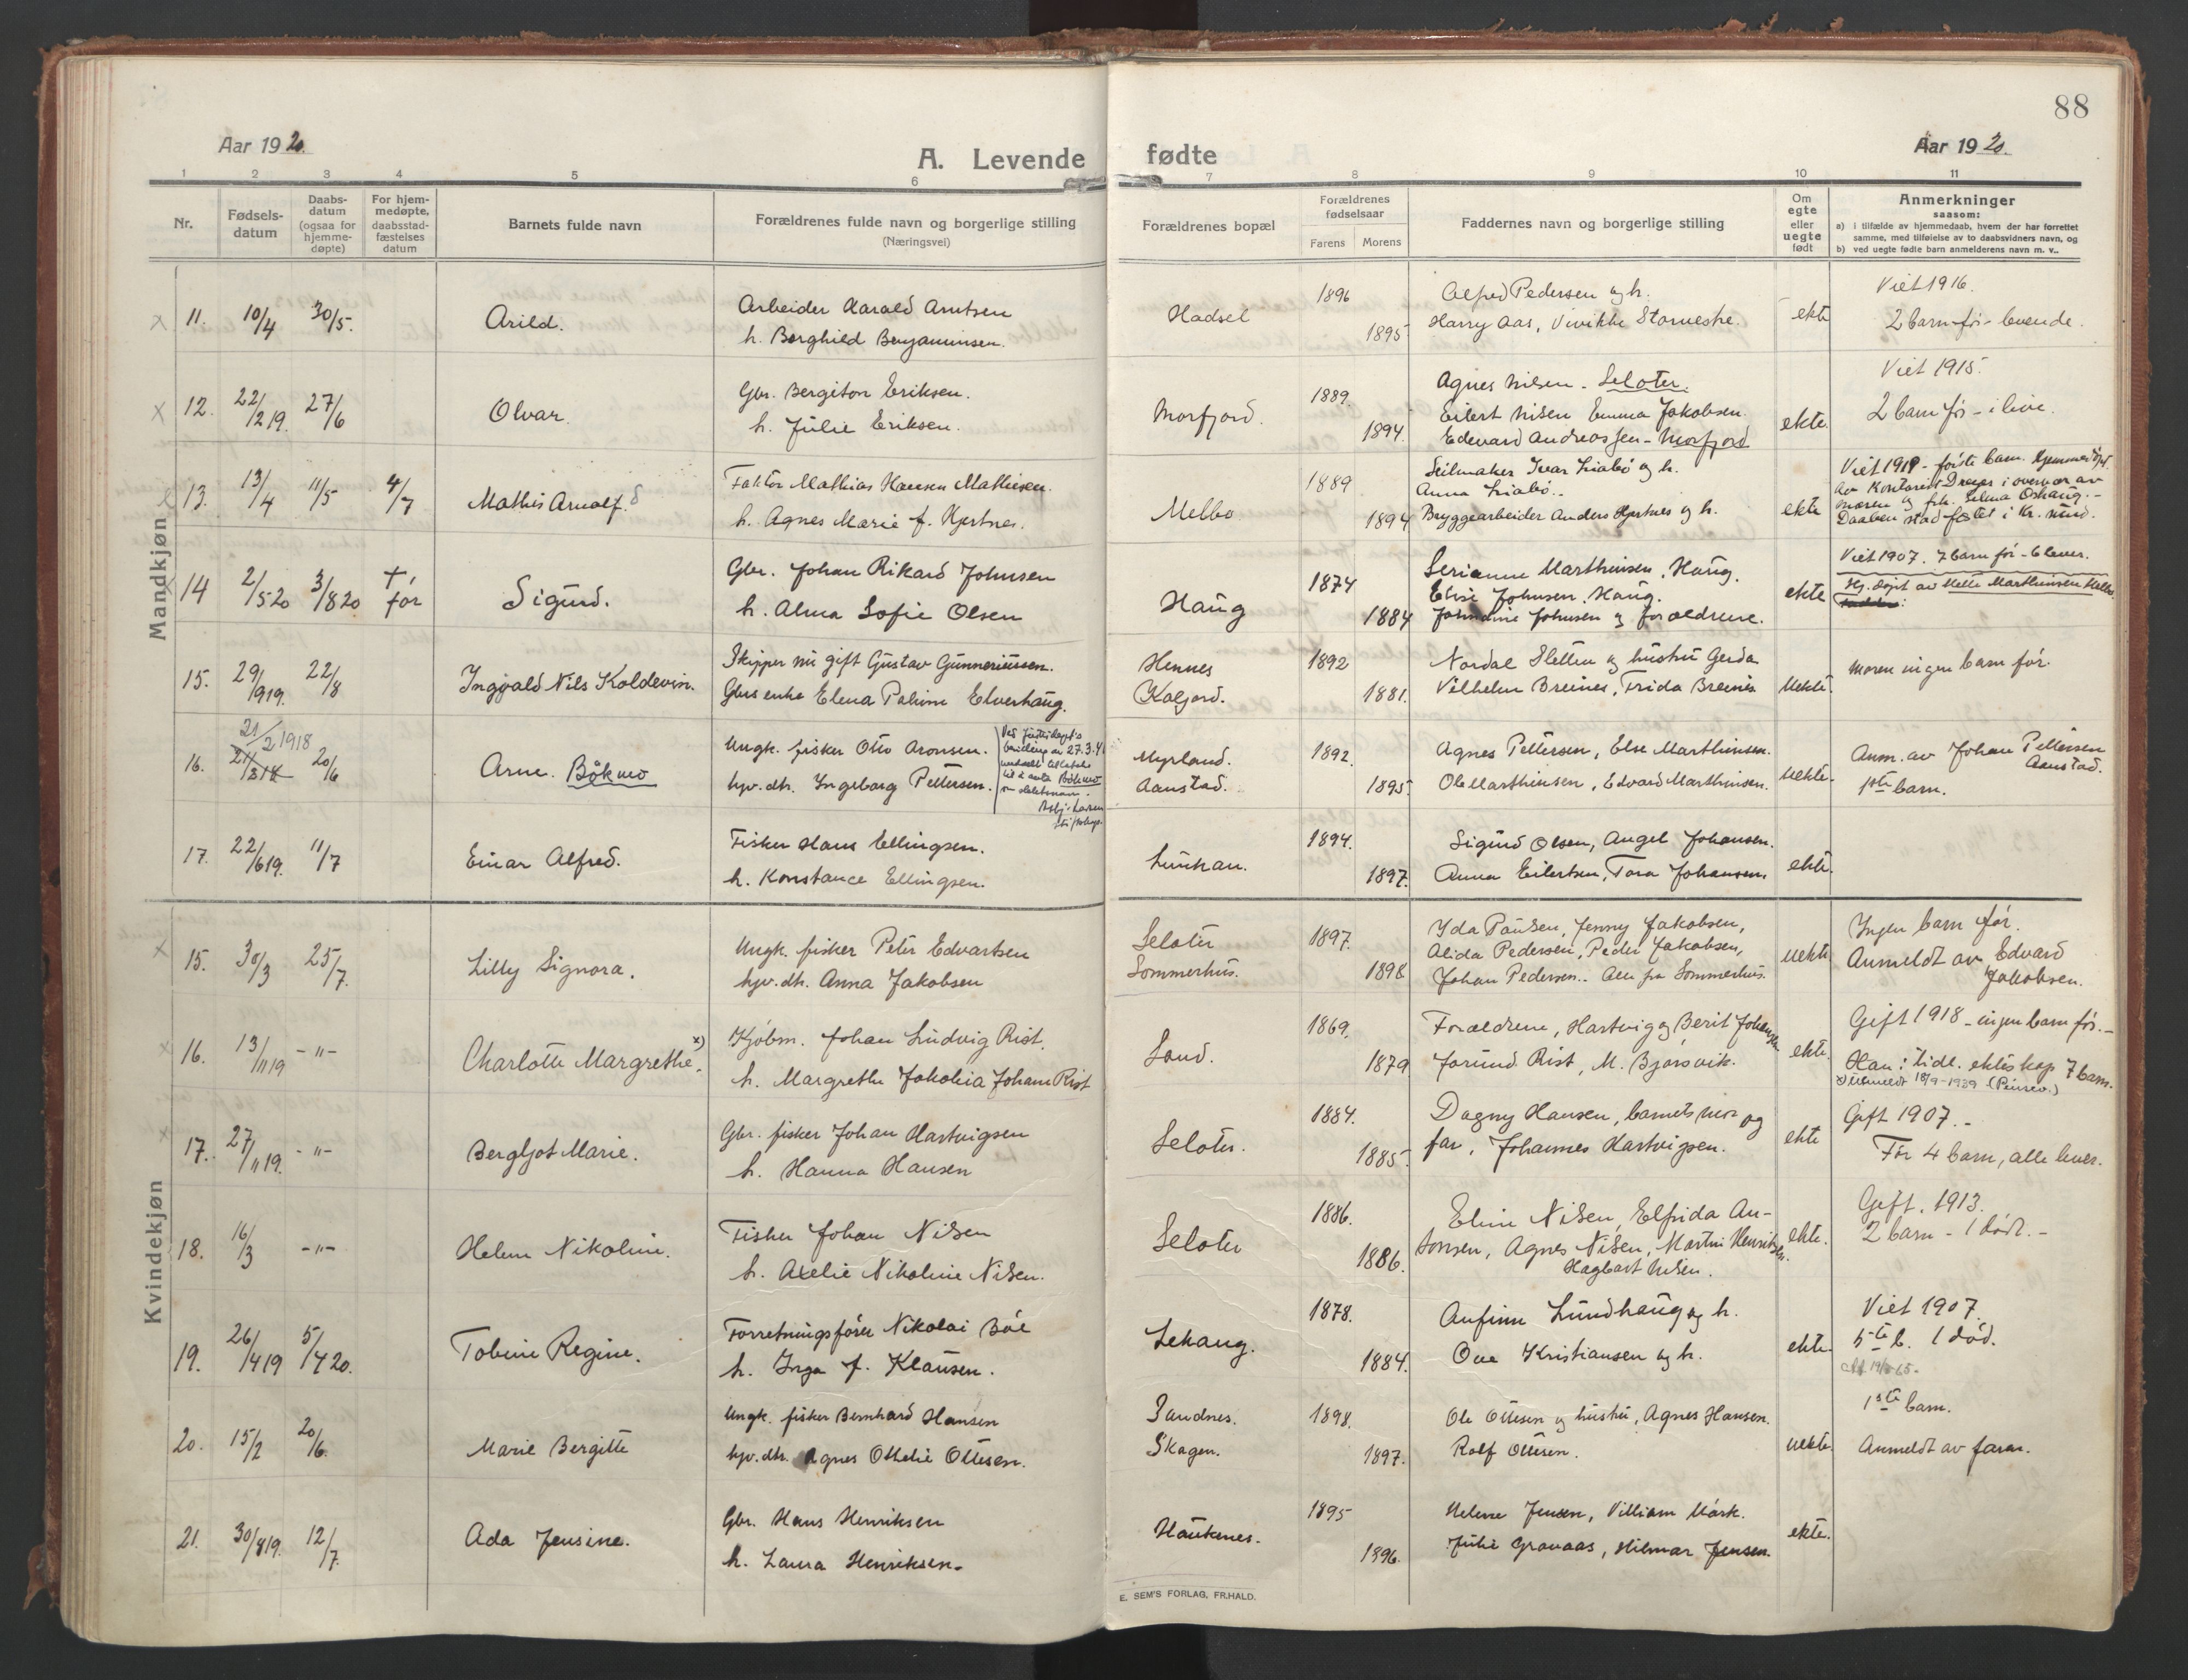 88
Aar 1920.
A. Levende fødte
Aar 1920.
1 2 3 4 5 6 7 8 9 10 11
Nr.
Fødsels-
datum
Daabs-
datum
(ogsaa for
hjemme-
døpte)
For hjem-
medøpte,
daabsstad-
fæstelses
datum
Barnets fulde navn
Forældrenes fulde navn og borgerlige stilling
(Næringsvei)
Forældrenes bopæl
Forældrenes
fødselsaar
Farens Morens
Faddernes navn og borgerlige stilling
Om
egte
eller
uegte
født
Anmerkninger
saasom:
a) i tilfælde av hjemmedaab, hvem der har forrettet
samme, med tilføielse av to daabsvidners navn, og
b) ved uegte fødte barn anmelderens navn m. v..
Mandkjøn
x 11. 10/4 30/5. Arild.
Arbeider Harald Arntsen
h. Borghild Benjaminsen.
Hadsel 1896 1895
Alfred Pedersen og h.
Harry Aas, Vivikke
ekte
Viet 1916.
2 barn før - levende.
x 12. 22/12 19. 27/6 Olvar.
Gbr. Bergiton Eriksen.
h. Julie Eriksen.
Morfjord. 1889. 1894.
Agnes Nilsen - Seloter.
Eilert Nilsen Emma Jakobsen.
Edevard Andreassen - Morfjord
ekte.
Viet 1915.
2 barn før - i live.
13. 13/4 11/5 4/7 Mathis Arnolf.
Faktor Mathias Hansen Mathisen.
h. Agnes Marie f. Hjertnes.
Melbo 1889 1894
Seilmaker Ivar Liabø og h.
Anna Liabø..
Bryggearbeider Anders Hjertnes og h.
ekte
Viet 1919 - første barn. Hjemmedøpt
av Kontorist Dreyer i overvær av
moren og frk. Selma Oshaug. -
Daaben stadfæstet i Kr. sund.
x 14 2/5 20 3/8 20 † før Sigurd.
Gbr. Johan Rikard Johnsen
h. Alma Sofie Olsen
Haug 1874 1884
Serianne Marthinsen. Haug.
Elise Johnsen. Haug.
Johnsen og forældrene.
ekte
Viet 1907. 7 barn før - 6 lever.
Hj. døpt av Marthinsen
15. 29/9 19. 22/8 Ingvald Nils Koldevin.
Skipper nu gift Gustav Gunneriussen.
Gbrs enke Elena Paline Elverhaug.
Hennes
Kaljord.
1892 1881.
Nordal Sletten og hustru Gerda
Vilhelm Breines, Frida Breines
Uekte.
Moren ingen barn før.
16. 21/2 1918 20/6 Arne. Bökmo
Ungk. fisker Otto Aronsen.
hjv. dtr. Ingeborg Pettersen.
Myrland.
Aanstad.
1892. 1895.
Agnes Pettersen, Else Marthinsen.
Ole Marthinsen, Edvard Marthinsen.
Uekte.
Anm. av Johan Pettersen
Aanstad.
1ste barn.
17. 22/6 19. 11/7 Einar Alfred.
Fisker Hans Ellingsen.
h. Konstance Ellingsen.
Lunkan. 1894. 1897.
Sigurd Olsen, Angel Johansen.
Anna Eilertsen, Tora Johansen.
ekte.
Kvindekjøn
x 15. 30/3 25/7. Lilly Signora.
Ungk. fisker Peter Edvartsen
hjv. dtr. Anna Jakobsen
Seloter
Sommerhus.
1897. 1898
Yda Paulsen, Jenny Jakobsen,
Alida Pedersen, Peder Jakobsen,
Johan Pedersen.. Alle fra Sommerhus.
uekte
Ingen barn før.
Anmeldt av Edvard
Jakobsen.
x 16. 13/11 19 -"- Charlotte Margrethe. x)
Kjøbm. Johan Ludvig Rist.
h. Margrethe Jakobia Johane Rist
Sand. 1869. 1879
Forældrene, Hartvig og Berit Johansen
Jorund Rist, M. Bjørsvik.
ekte.
Gift 1918 - ingen barn før. -
Han i tidl. ekteskap 7 barn.
x) Utmeldt 18/9-1939
x 17. 27/11 19. -"- Bergljot Marie.
Gbr. fisker Johan Hartvigsen
h. Hanna Hansen
Seloter. 1884. 1885.
Dagny Hansen, barnets mor og
far, Johannes Hartvigsen.
ekte
Gift 1907. -
Før 4 barn, alle lever.
18. 16/3 -"- Helene Nikoline.
Fisker Johan Nilsen
h. Axelie Nikoline Nilsen.
Seloter 1886. 1886.
Eline Nilsen, Elfrida An-
tonsen, Agnes Nilsen, Martin Henriksen.
Hagbart Nilsen.
ekte.
Gift. 1913.
2 barn - 1 død. -
19. 26/4 19 5/4 20. Tobine Regine.
Forretningsfører Nikolai Bøe
h. Inga f. Klausen.
Lekang. 1878. 1884.
Anfinn Lundhaug og h.
Ove Kristiansen og h.
ekte.
Viet 1907.
5te b. 1 død.
20. 15/2 20/6. Marie Bergitte
Ungk. fisker Bernhard Hansen
hjv. dtr. Agnes Othelie Ottesen.
Sandnes.
Skagen.
1898. 1897.
Ole Ottesen og hustru, Agnes Hansen.
Rolf Ottesen.
uekte.
1ste barn.
Anmeldt av faren.
21. 30/8 19. 12/7. Ada Jensine.
Gbr. Hans Henriksen
h. Laura Henriksen.
Haukenes. 1895 1896.
Helene Jensen, Villiam Mørk.
Julie Gravaas, Hilmar Jensen.
ekte.
E. SEM'S FORLAG, FR.HALD.